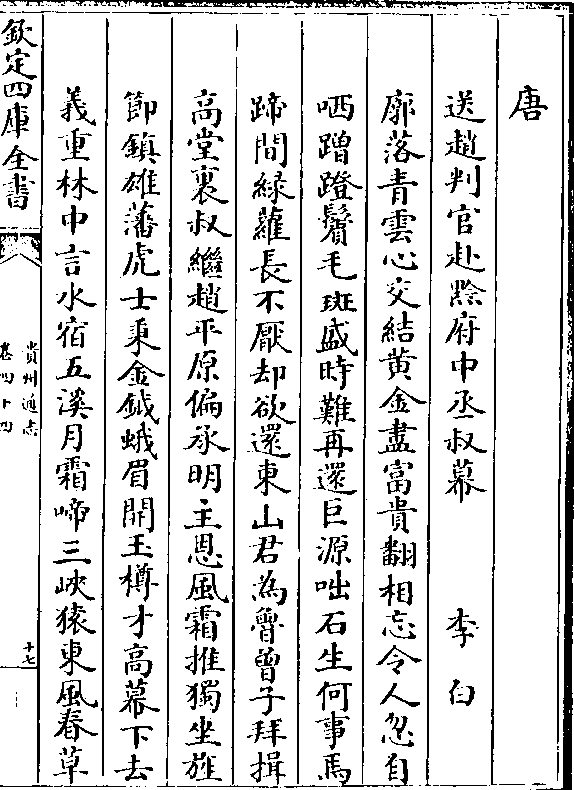 唐
送趙判官赴黔府中丞叔幕　李白
廓落青雲心交結黄金盡富貴翻相忘令人忽自
哂蹭蹬鬢毛斑盛時難再還巨源咄石生何事馬
蹄間緑蘿長不厭却欲還東山君為魯曾子拜揖
高堂裏叔繼趙平原偏承明主恩風霜推獨坐旌
節鎮雄藩虎士秉金鉞蛾眉開玉樽才高幕下去
義重林中言水宿五溪月霜啼三峽猿東風春草
欽定四庫全書
貴州通志
卷四十四
十七